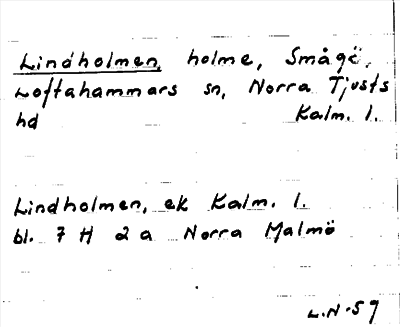 Lindholmen, holme, Smågö,
Loftahammars sn, Norra Tjusts
hd Kalm. l.
Lindholmen, ek Kalm. l.
bl. 7 H 2 a Norra Malmö
L.N-59